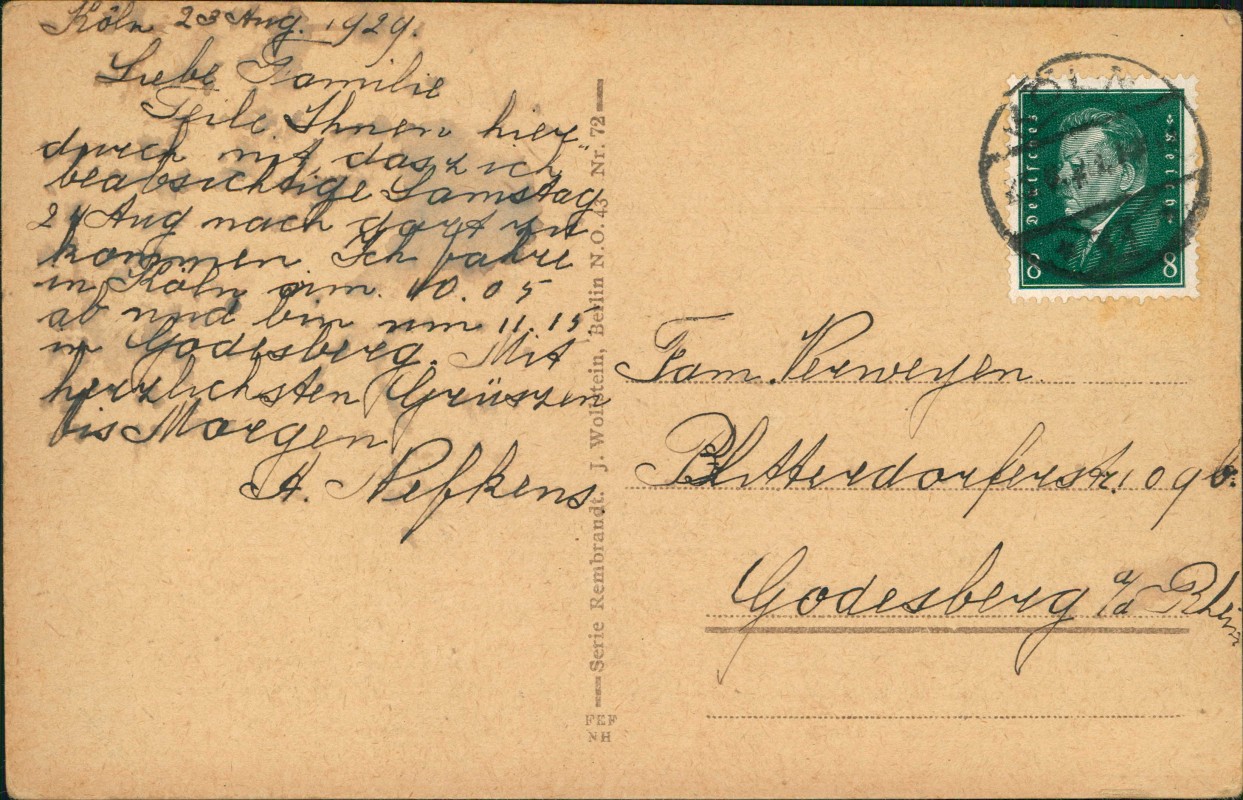 Köln 23 Aug. 1929.
Liebe Familie
Teile Ihnen hier-
durch mit dasz ich
beabsichtige Samstag
24 Aug nach dort zu
kommen Ich fahre
in Köln um. 10.05
ab und bin um 11.15
in Godesberg. Mit
herzlichsten Grüszen
bis Morgen
A. Nefkens.
Serie Rembrandt. J. Wollstein, Berlin N.O. 43 Nr. 72
FEF
NH
Deutsches Reich
8 8
KÖLN
Fam. Verweyen.
Plitterdorferstr. 109b.
Godesberg a/d Rhein